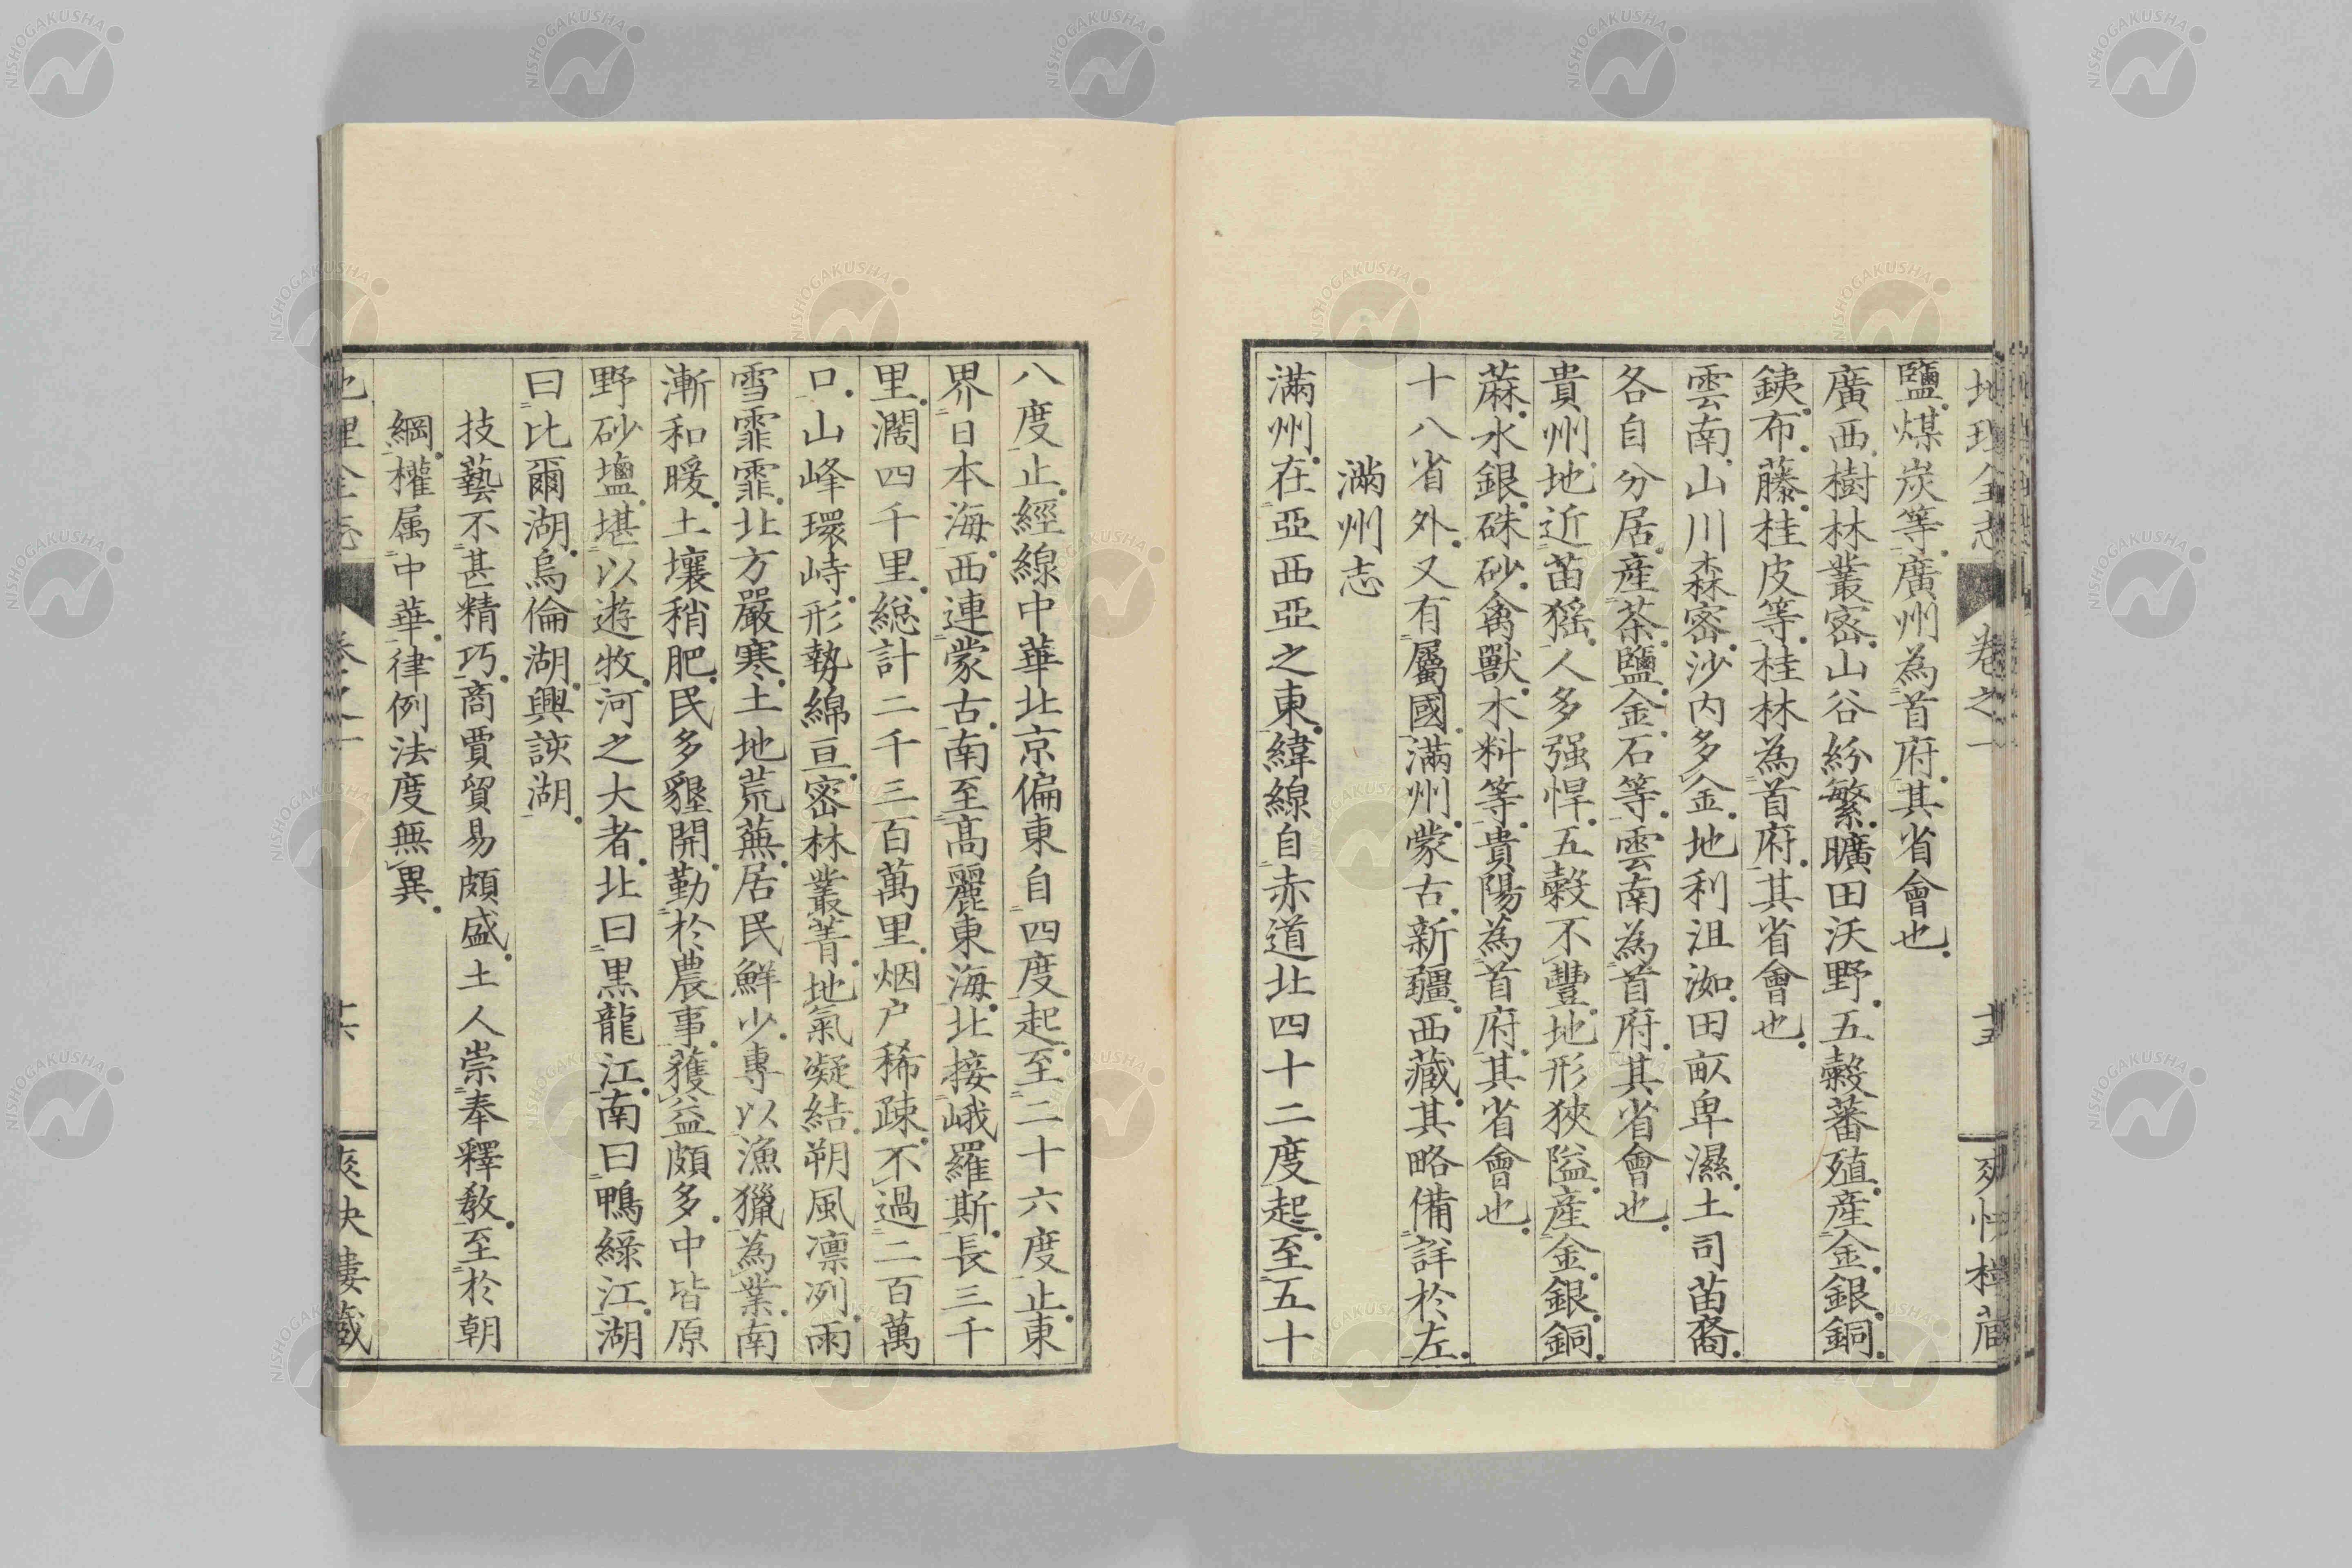 地理全志 卷之一 十五 爽快樓藏
鹽煤炭等廣州為首府其省會也
廣西樹林叢密山谷紛繁曠田沃野五穀蕃殖産金銀銅
銕布藤桂皮等桂林為首府其省會也
雲南山川森密沙内多金地利沮洳田畝卑濕土司苗裔
各自分居産茶鹽金石等雲南為首府其省會也
貴州地近苗猺人多强悍五穀不豐地形狹隘産金銀銅
蔴水銀硃砂禽獸木料等貴陽為首府其省會也
十八省外又有屬國滿州蒙古新疆西藏其略備詳於左
滿州志
滿州在亞西亞之東緯線自赤道北四十二度起至五十
八度止經線中華北京偏東自四度起至二十六度止東
界日本海西連蒙古南至高麗東海北接峨羅斯長三千
里濶四千里総計二千三百萬里烟户稀疎不過二百萬
口山峰環峙形勢綿亘密林叢菁地氣凝結朔風凛冽雨
雪霏霏北方嚴寒土地荒蕪居民鮮少專以漁獵為業南
漸和暖土壤稍肥民多墾開勤於農事獲益頗多中皆原
野砂塩堪以遊牧河之大者北曰黒龍江南曰鴨綠江湖
曰比爾湖烏倫湖興該湖
技藝不甚精巧商賈貿易頗盛土人崇奉釋教至於朝
綱權属中華律例法度無異
地理全志 卷之一 十六 爽快樓藏
NISHOGAKUSHA